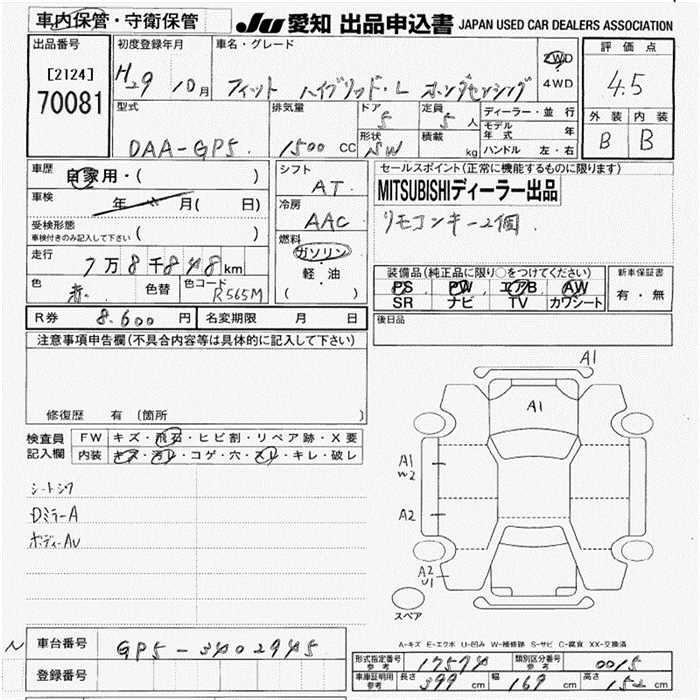 車内保管・守衛保管
JU 愛知 出品申込書 JAPAN USED CAR DEALERS ASSOCIATION
出品番号 初度登録年月 車名・グレード 2WD 評価点
[2124] H29 10月 フィット ハイブリッド・L ホンダセンシング 4WD 4.5
70081
型式 排気量 ドア 定員 ディーラー・並行 外装 内装
DAA-GP5. 1500 CC 5 5 人 モデル年式 年 B B
形状 SW 積載 kg ハンドル 左・右
車歴 自家用・( ) シフト セールスポイント(正常に機能するものに限ります)
車検 年 月( 日) AT MITSUBISHIディーラー出品
冷房 リモコンキー2個.
受検形態 AAC
車検付きのみ記入して下さい ( ) 燃料
走行 ガソリン
7万8千848km 軽・油 装備品(純正品に限り○をつけてください) 新車保証書
色 赤. 色替 色コード R565M ( ) PS PW エアB AW 有・無
SR ナビ TV カワシート
R券 8.600 円 名変期限 月 日 後日品
注意事項申告欄(不具合内容等は具体的に記入して下さい)
修復歴 有 (箇所 )
検査員 FW キズ・飛石・ヒビ割・リペア跡・X要
記入欄 内装 キズ・汚レ・コゲ・穴・スレ・キレ・破レ
シートシワ
DミラーA
ボディーAU
A1
A1
A1
W2
A2
A2
U1
スペア
A-キズ E-エクボ U-凹み W-補修跡 S-サビ C-腐食 XX-交換済
N 車台番号 GP5-3402945
登録番号
形式指定番号 参考 17574 類別区分番号 参考 0015
車庫証明用 参考 長さ 399 cm 幅 169 cm 高さ 152 cm